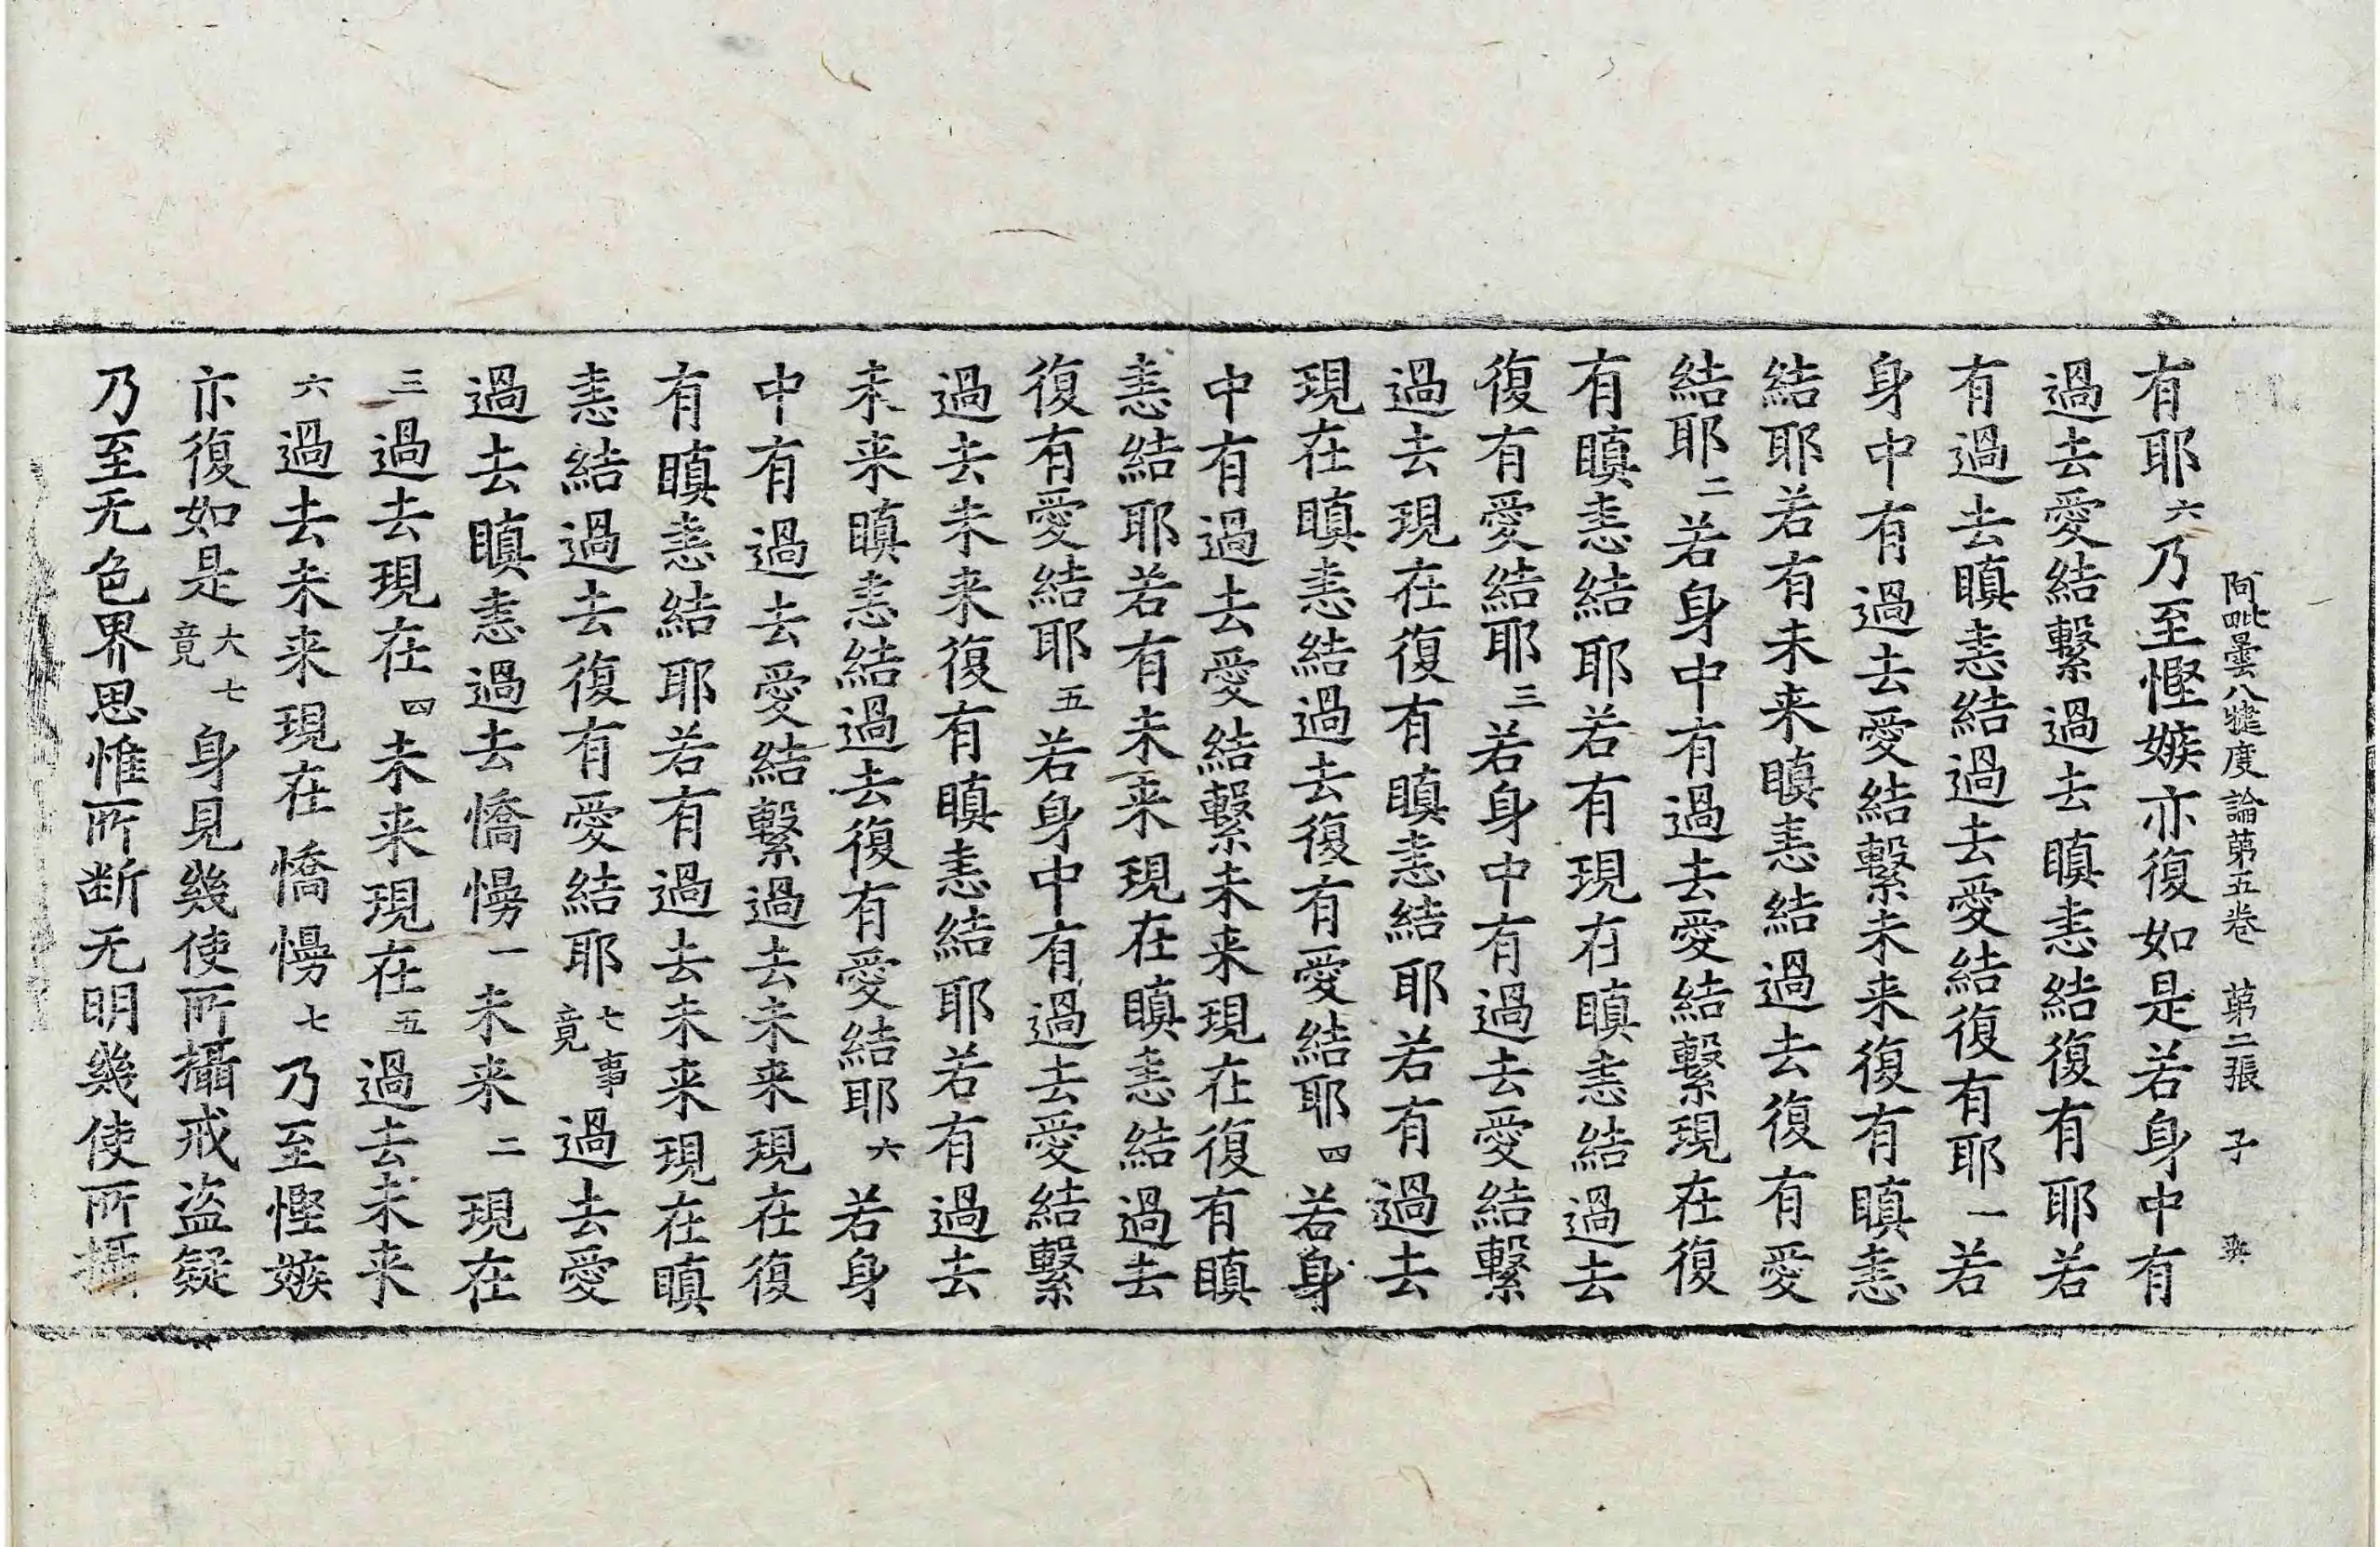 阿毗曇八犍度論苐五卷　苐二張　子
有耶六乃至慳嫉亦復如是若身中有
過去愛結繫過去瞋恚結復有耶若
有過去瞋恚結過去愛結復有耶一若
身中有過去愛結繫未来復有瞋恚
結耶若有未来瞋恚結過去復有愛
結耶二若身中有過去愛結繫現在復
有瞋恚結耶若有現在瞋恚結過去
復有愛結耶三若身中有過去愛結繫
過去現在復有瞋恚結耶若有過去
現在瞋恚結過去復有愛結耶四若身
中有過去愛結繫未来現在復有瞋
恚結耶若有未来現在瞋恚結過去
復有愛結耶五若身中有過去愛結繫
過去未来復有瞋恚結耶若有過去
未来瞋恚結過去復有愛結耶六若身
中有過去愛結繫過去未来現在復
有瞋恚結耶若有過去未来現在瞋
恚結過去復有愛結耶七事竟過去愛
過去瞋恚過去憍慢一未来二現在
三過去現在四未来現在五過去未来
六過去未来現在憍慢七乃至慳嫉
亦復如是大七竟身見幾使所攝戒盗疑
乃至无色界思惟所断无明幾使所攝